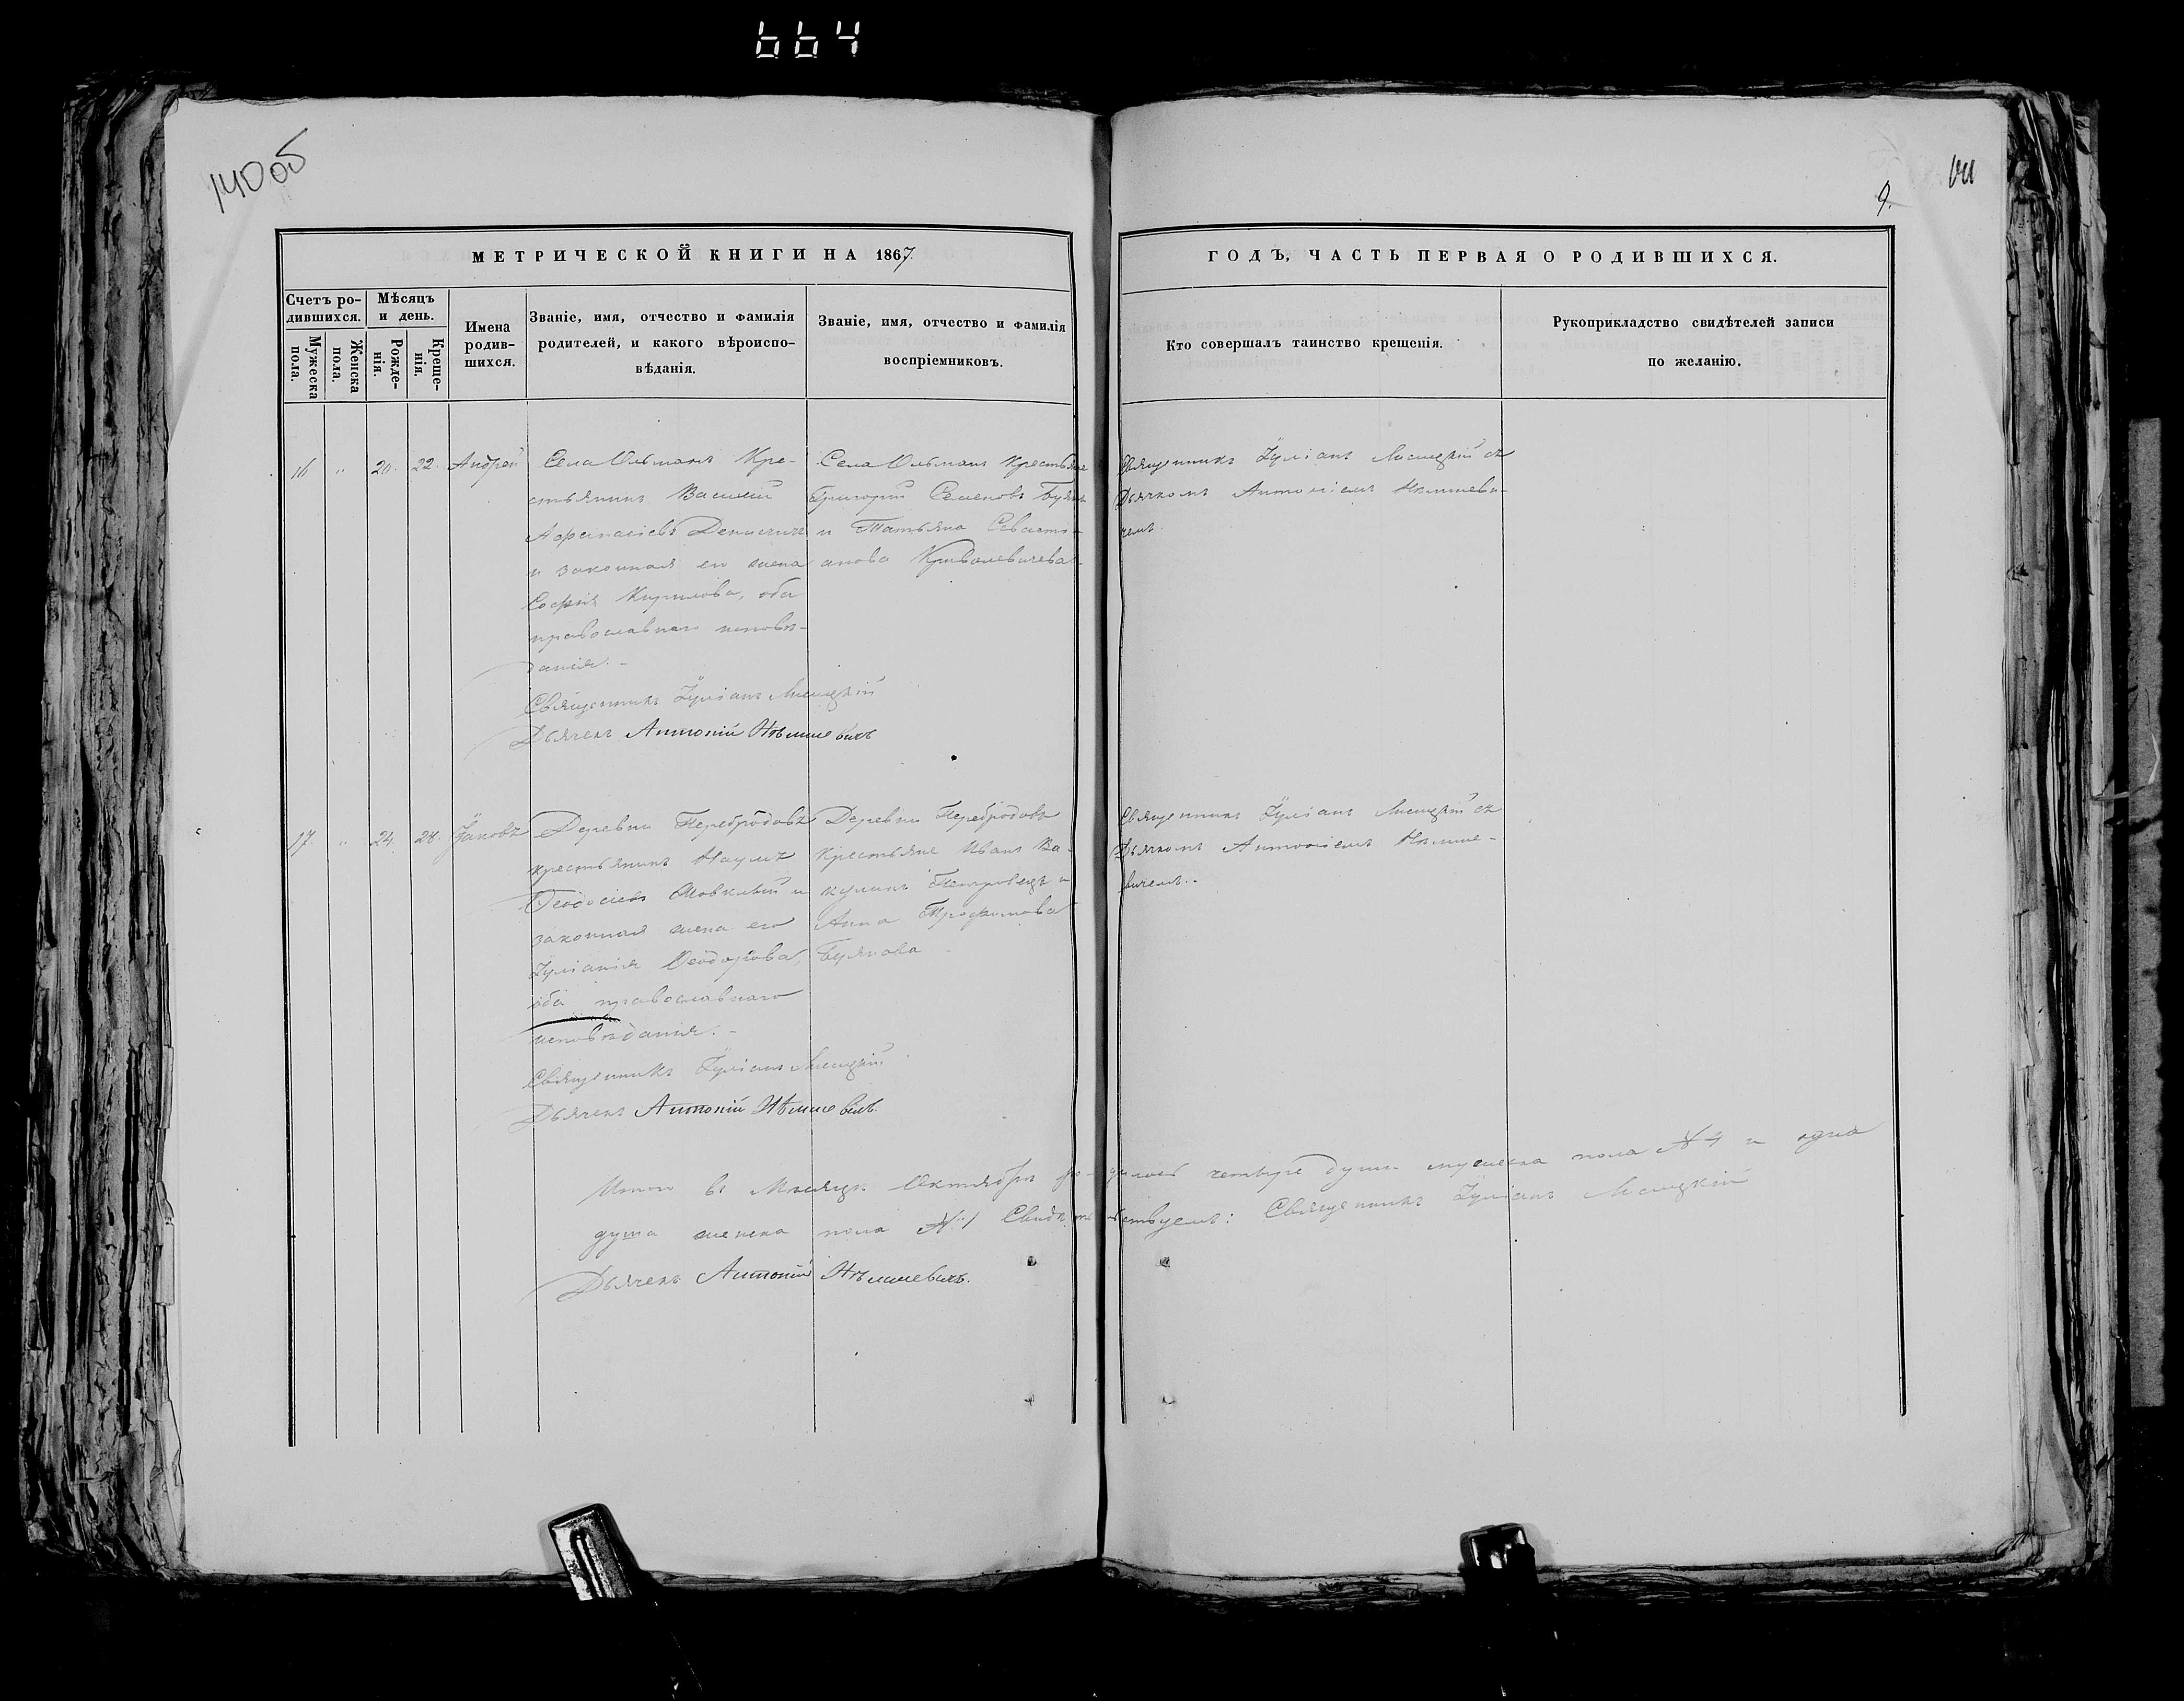 664
140об
9.
МЕТРИЧЕСКОЙ КНИГИ НА 1867
ГОДЪ, ЧАСТЬ ПЕРВАЯ О РОДИВШИХСЯ.
Счетъ ро-
дившихся.
Мужеска
пола.
Женска
пола.
Мѣсяцъ
и день.
Рожде-
нія.
Креще-
нія.
Имена
родив-
шихся.
Званіе, имя, отчество и фамилія
родителей, и какого вѣроиспо-
вѣданія.
Званіе, имя, отчество и фамилія
воспріемниковъ.
Кто совершалъ таинство крещенія.
Рукоприкладство свидѣтелей записи
по желанію.
16 " 20. 22. Андрей
Села Ольманъ Кре-
стьянинъ Василій
Афанасіевъ Денисичъ
и законная его жена
Софія Кирилова, оба
православнаго исповѣ-
данія. -
Священникъ Іуліанъ Лисицкій
Дьячекъ Антоній Нѣмшевичъ
Села Ольманъ Крестьяне
Григорій Семеновъ
и Татьяна Севасти-
анова
Священникъ Іуліанъ Лисицкій съ
Дьячкомъ Антоніемъ Нѣмшеви-
чемъ.
17. " 24. 28. Іаковъ
Деревни Перебродовъ
крестьянинъ Наумъ
Ѳеодосіевъ и
законная жена его
Іуліанія Ѳеодорова,
оба православнаго
исповѣданія. -
Священникъ Іуліанъ Лисицкій
Дьячекъ Антоній Нѣмшевичъ.
Деревни Перебродовъ
Крестьяне Иванъ Ва-
кулинъ Петровецъ и
Анна Трофимова
Бунянова
Священникъ Іуліанъ Лисицкій съ
Дьячкомъ Антоніемъ Нѣмше-
вичемъ. -
Итого въ Мѣсяцѣ Октябрѣ ро-дилось четыре души мужеска пола № 4 и одна
душа женска пола № 1 Свидѣтельствуемъ: Священникъ Іуліанъ Лисицкій
Дьячекъ Антоній Нѣмшевичъ.